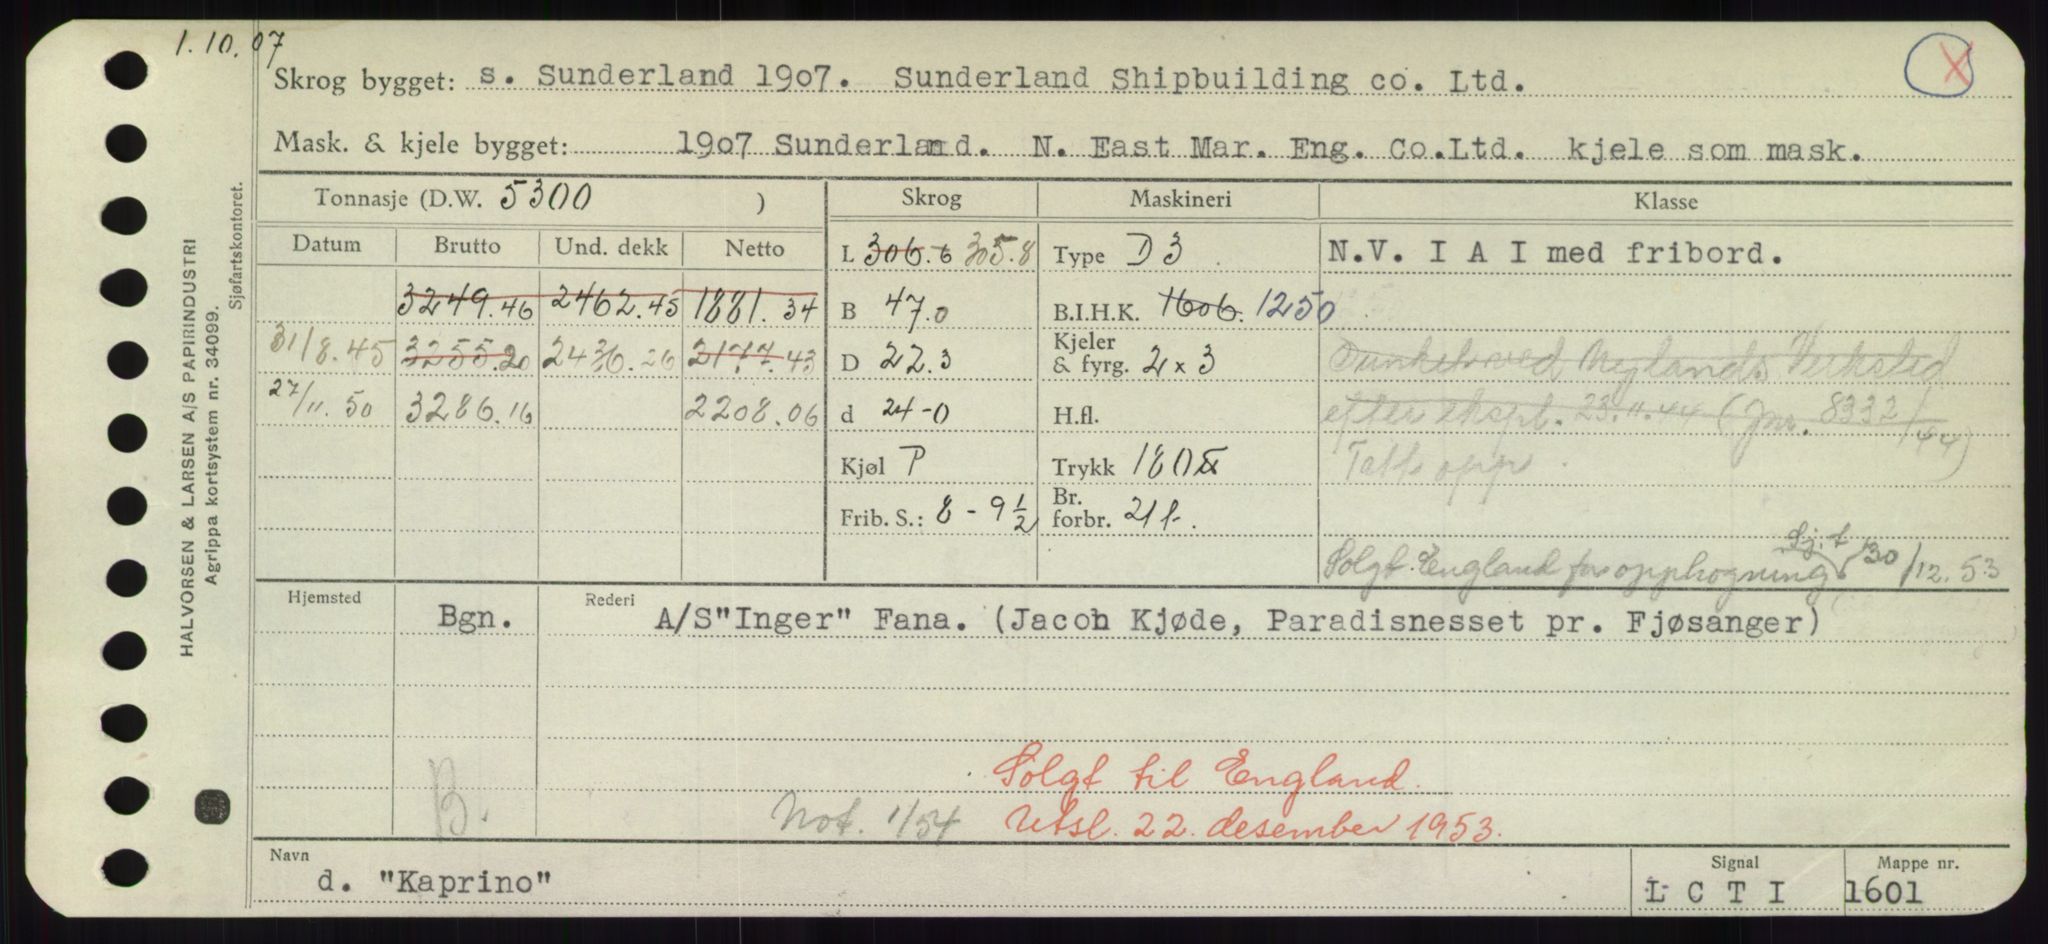 1.10.07
Skrog bygget: s. Sunderland 1907. Sunderland Shipbuilding co. Ltd.
X
Mask. & kjele bygget: 1907 Sunderland. N. East Mar. Eng. Co.Ltd. kjele som mask.
Tonnasje (D.W. 5300 ) Skrog Maskineri Klasse
Datum Brutto Und. dekk Netto L 306.6 305.8 Type D 3 N.V. I A I med fribord.
3249.46 2462.45 1881.34 B 47.0 B.I.H.K. 1606. 1250
31/8.45 3255.20 2436.26 2177.43 D 22.3 Kjeler & fyrg. 2 x 3 Sunket ved Nylands Verksted
27/11.50 3286.16 2208.06 d 24-0 H.fl. efter ekspl. 23.11.44 (Jnr. 8332/44)
Kjøl P Trykk 180 Tatt opp.
Frib. S.: 8 - 9 1/2 Br. forbr. 21 t.
Solgt England for opphogning Sj.f 30/12.53
Hjemsted Bgn. Rederi A/S"Inger" Fana. (Jacob Kjøde, Paradisnesset pr. Fjøsanger)
Solgt til England.
B. Not. 1/54 Utsl. 22. desember 1953.
Navn Signal Mappe nr.
d. "Kaprino" L C T I 1601
HALVORSEN & LARSEN A/S PAPIRINDUSTRI
Agrippa kortsystem nr. 34099.
Sjøfartskontoret.